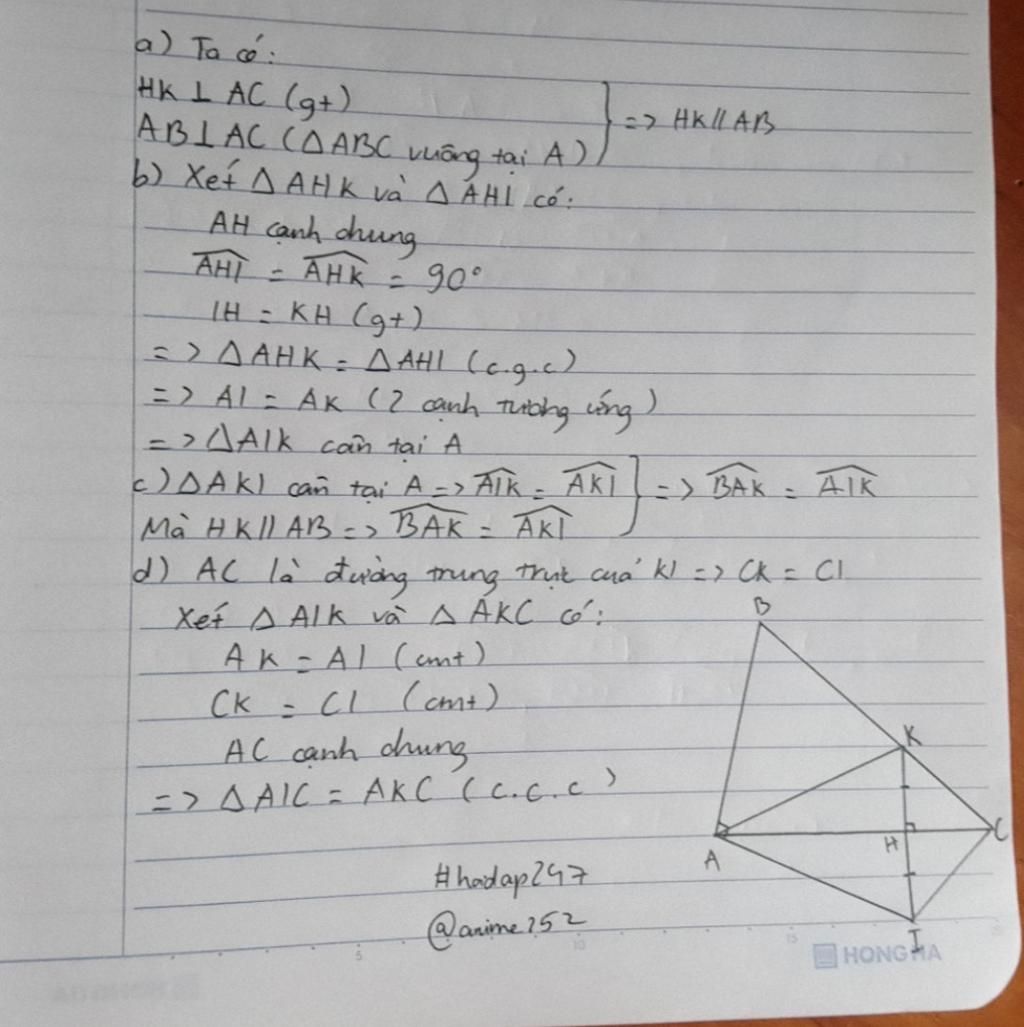 a) Ta có:
HK ⊥ AC (gt)
AB ⊥ AC (△ABC vuông tại A) } => HK // AB
b) Xét △ AHK và △ AHI có:
AH cạnh chung
\widehat{AHI} = \widehat{AHK} = 90°
IH = KH (gt)
=> △AHK = △AHI (c.g.c)
=> AI = AK (2 cạnh tương ứng)
=> △AIK cân tại A
c) △AKI cân tại A => \widehat{AIK} = \widehat{AKI}
Mà HK // AB => \widehat{BAK} = \widehat{AKI} } => \widehat{BAK} = \widehat{AIK}
d) AC là đường trung trực của KI => CK = CI
Xét △ AIK và △ AKC có:
AK = AI (cmt)
CK = CI (cmt)
AC cạnh chung
=> △AIC = AKC (c.c.c)
B
K
C
H
A
I
#hadap247
@anime252
5 10 15
HONG HA